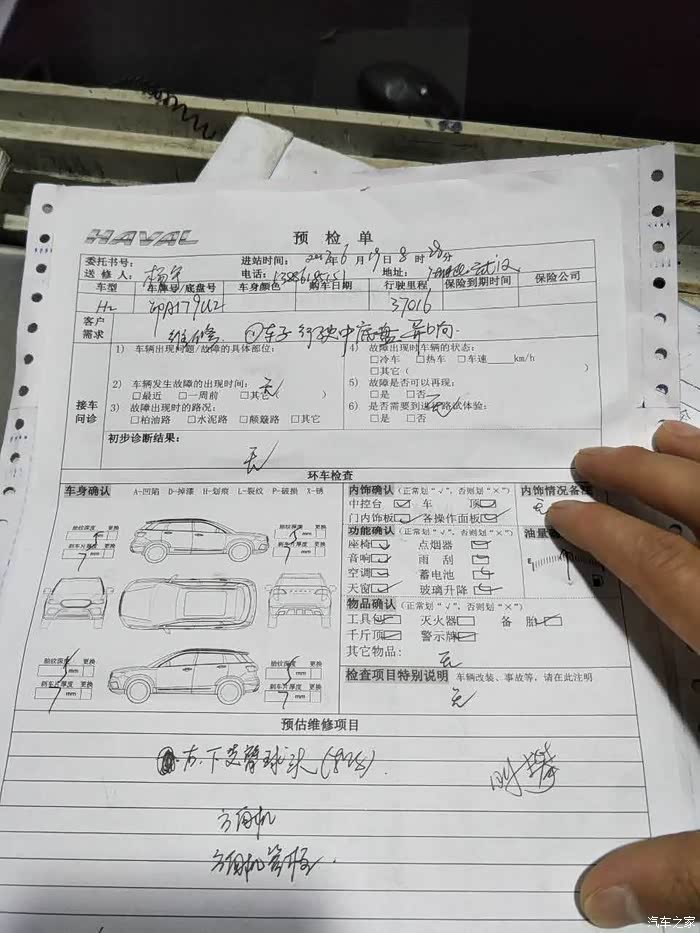 HAVAL 预 检 单
委托书号： 进站时间： 年6月19日8时28分
送 修 人： 电话： 地址：
车型 车牌号/底盘号 车身颜色 购车日期 行驶里程 保险到期时间 保险公司
H2 37016
客户需求 维修 ①车子行驶中底盘异响.
接车问诊
1) 车辆出现问题/故障的具体部位：
2) 车辆发生故障的出现时间： 无
□最近 □一周前 □其它( )
3) 故障出现时的路况：
□柏油路 □水泥路 □颠簸路 □其它
4) 故障出现时车辆的状态：
□冷车 □热车 □车速 km/h
□其它( )
5) 故障是否可以再现：
□是 □否 无
6) 是否需要 路试体验：
□是 □否
初步诊断结果：
无
环车检查
车身确认 A-凹陷 D-掉漆 H-划痕 L-裂纹 P-破损 X-锈
轮胎深度 更换
mm
刹车片厚度 更换
mm
轮胎深度 更换
mm
刹车片厚度 更换
mm
轮胎深度 更换
mm
刹车片厚度 更换
mm
轮胎深度 更换
mm
刹车片厚度 更换
mm
内饰确认 (正常划“√”，否则划“×”)
中控台 车 顶
门内饰板 各操作面板
内饰情况备注
无
功能确认 (正常划“√”，否则划“×”)
座椅 点烟器
音响 雨 刮
空调 蓄电池
天窗 玻璃升降
油量
E
物品确认 (正常划“√”，否则划“×”)
工具包 灭火器 备 胎
千斤顶 警示牌
其它物品： 无
检查项目特别说明 车辆改装、事故等，请在此注明
无
预估维修项目
右.下支臂球头
方向机
方向机管柱.
汽车之家